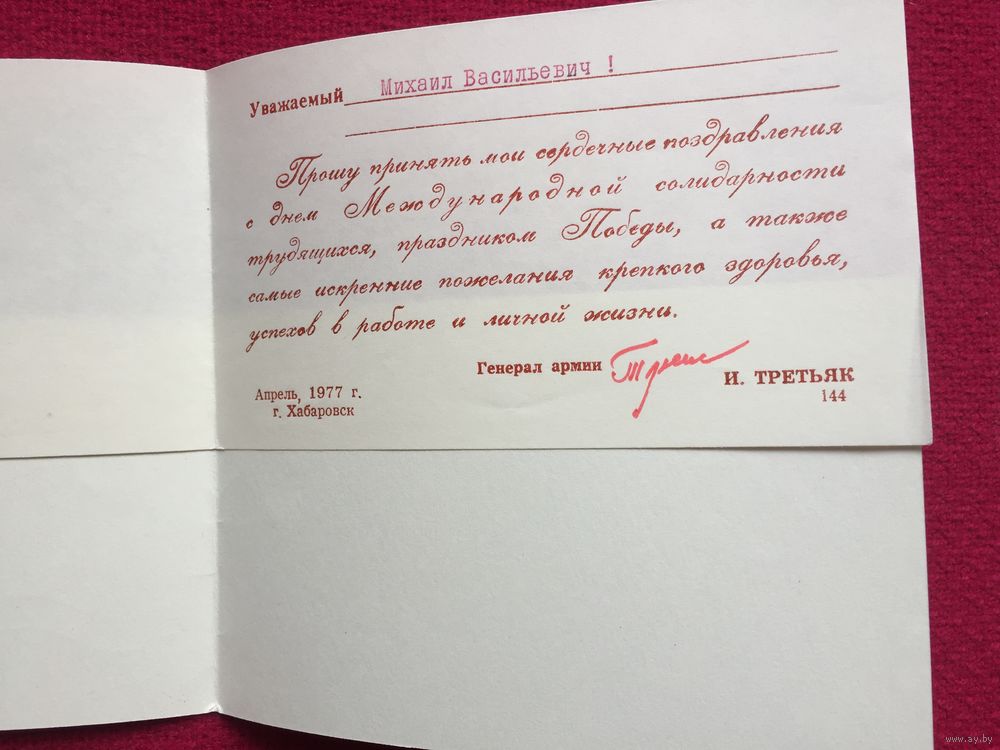 Уважаемый Михаил Васильевич !
Прошу принять мои сердечные поздравления
с днем Международной солидарности
трудящихся, праздником Победы, а также
самые искренние пожелания крепкого здоровья,
успехов в работе и личной жизни.
Генерал армии И. ТРЕТЬЯК
144
Апрель, 1977 г.
г. Хабаровск
www.ay.by